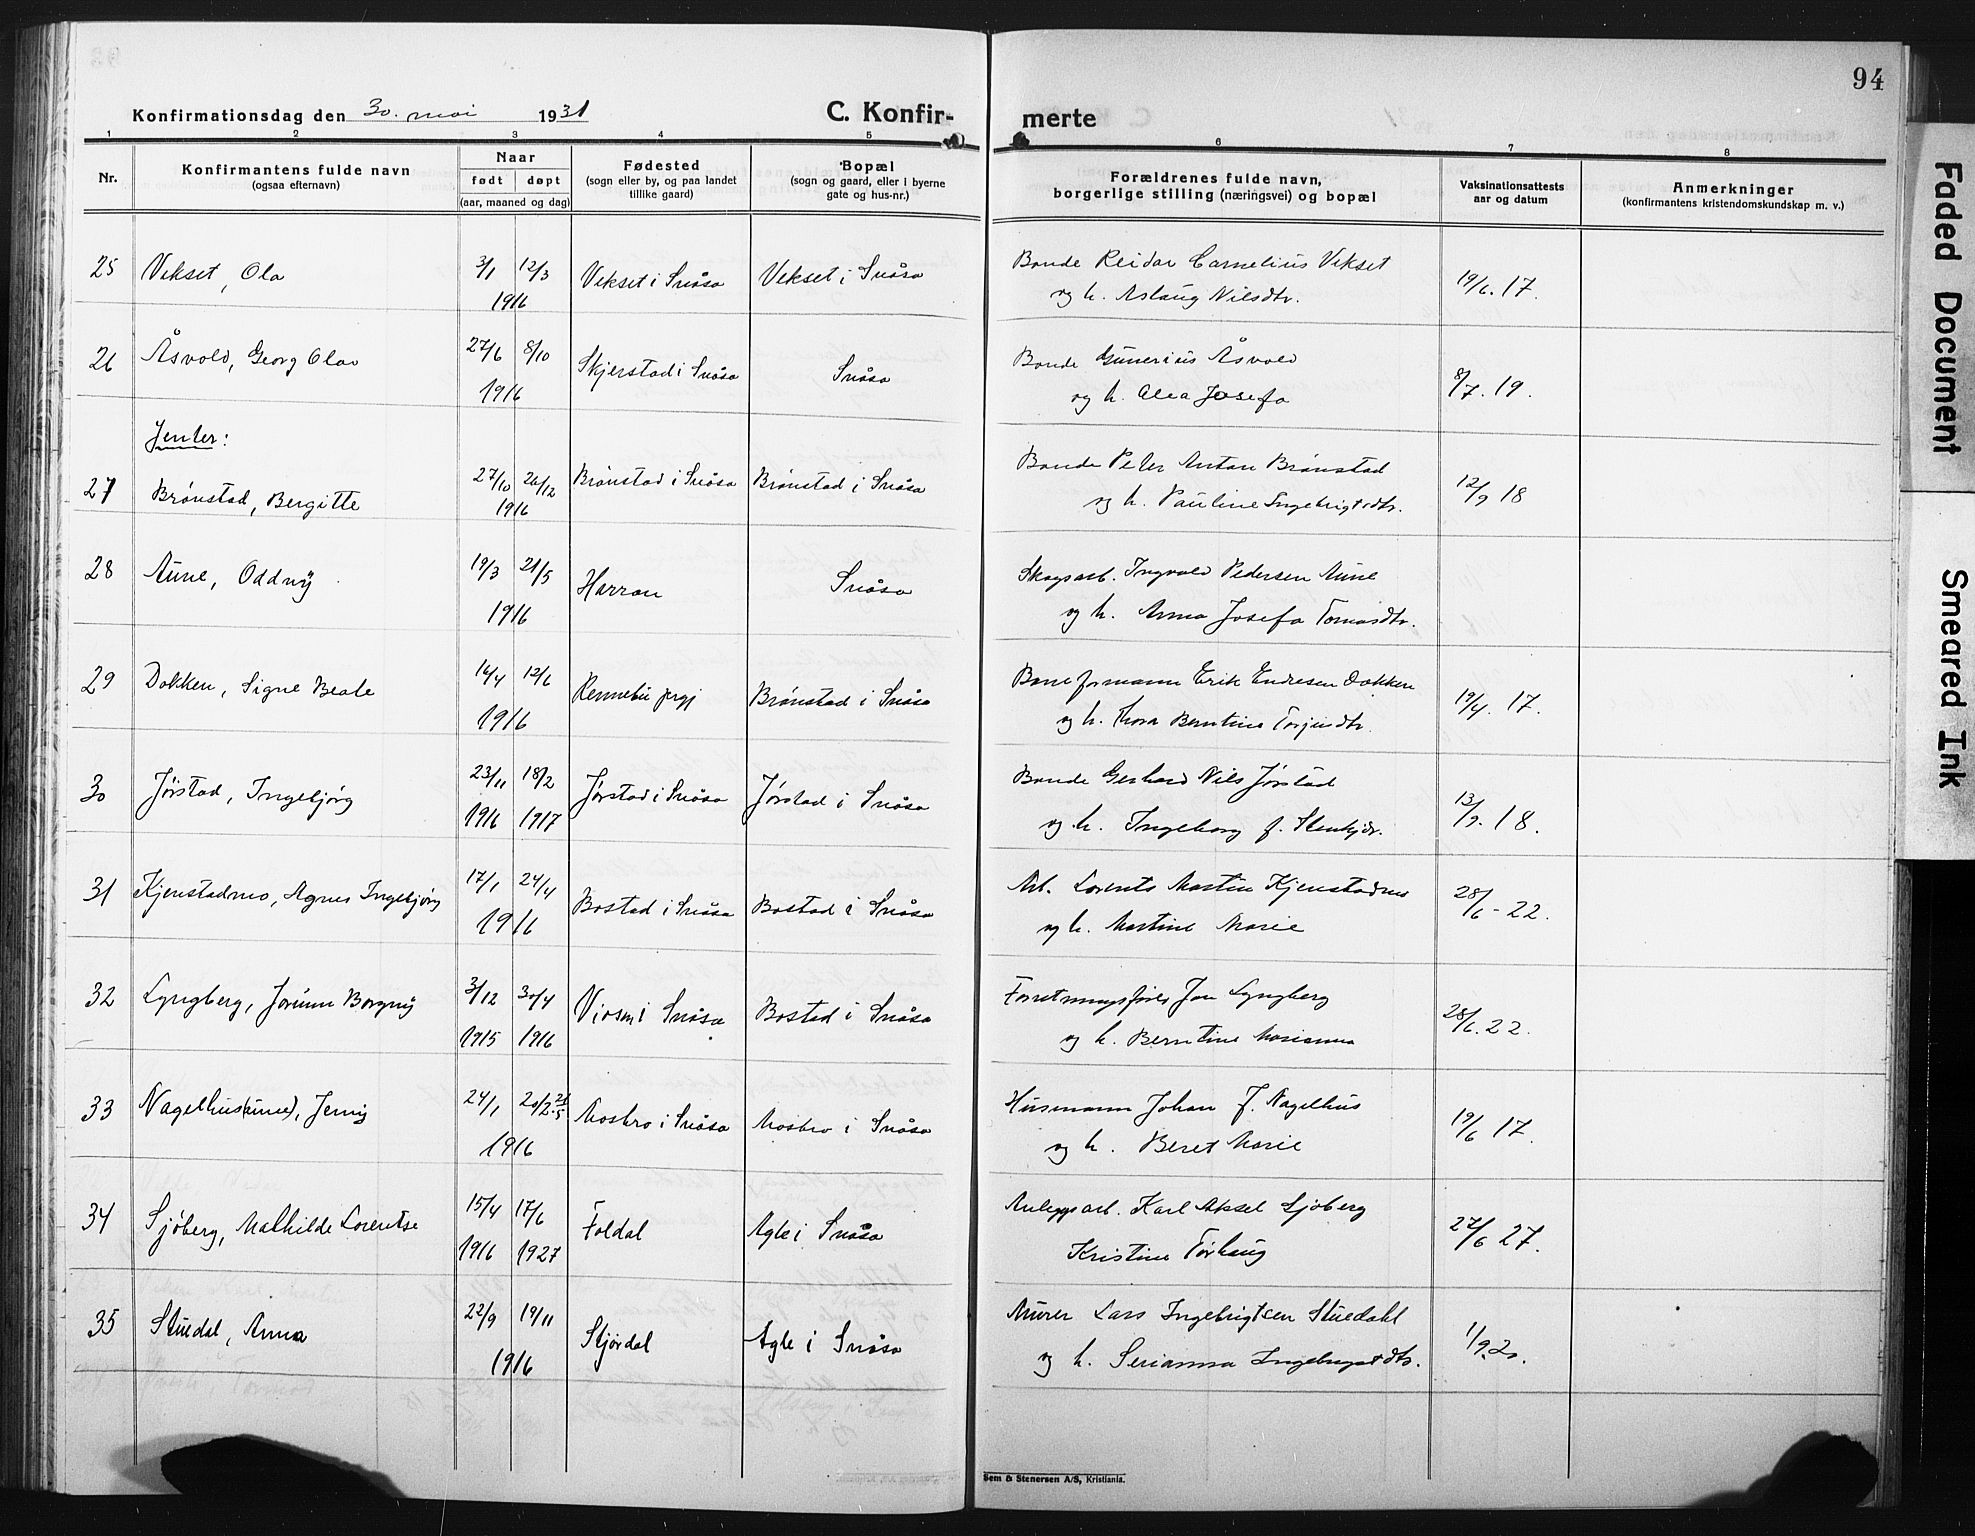 94
Konfirmationsdag den 30. mai 1931
C. Konfir-merte
1 2 3 4 5 6 7 8
Nr.
Konfirmantens fulde navn
(ogsaa efternavn)
Naar
født døpt
(aar, maaned og dag)
Fødested
(sogn eller by, og paa landet
tillike gaard)
Bopæl
(sogn og gaard, eller i byerne
gate og hus-nr.)
Forældrenes fulde navn,
borgerlige stilling (næringsvei) og bopæl
Vaksinationsattests
aar og datum
Anmerkninger
(konfirmantens kristendomskundskap m. v.)
25 Vekset, Ola 3/1 12/3 Vekset i Snåsa Vekset i Snåsa Bonde Reidar Cornelius Vekset 19/6. 17.
1916 og h. Aslaug Nilsdtr.
26 Åsvold, Georg Olav 27/6 8/10 Skjerstad i Snåsa Snåsa Bonde Gunerius Åsvold 8/7. 19.
1916 og h. Alea Josefa
Jenter:
27 Brønstad, Bergitte 27/10 26/12 Brønstad i Snåsa Brønstad i Snåsa Bonde Peter Anton Brønstad 12/9 18
1916 og h. Pauline Ingebrigtsdtr.
28 Aune, Oddny 19/3 21/5 Harran Snåsa Skogsarb. Ingvald Pedersen Aune
1916 og h. Anna Josefa Tomasdtr.
29 Dokken, Signe Beate 16/4 12/6 Rennebu prgj Brønstad i Snåsa Baneformann Erik Endresen Dokken 19/4. 17.
1916 og h. Thora Berntine Torjusdtr.
30 Jørstad, Ingebjørg 23/11 18/2 Jørstad i Snåsa Jørstad i Snåsa Bonde Gerhard Nils Jørstad 13/9. 18.
1916 1917 og h. Ingeborg f.
31 Kjenstadmo, Agnes Ingebjørg 17/1 24/4 Bostad i Snåsa Bostad i Snåsa Arb. Lorents Martin Kjenstadmo 28/6 - 22.
1916 og h. Martine Marie
32 Lyngberg, Jorunn Borgny 3/12 30/4 Viosen i Snåsa Bostad i Snåsa Forretningsfører Jon Lyngberg 28/6. 22.
1915 1916 og h. Berntine Marianna
33 Nagelhus(aune), Jenny 24/1 20/2. 28/5 Mosbro i Snåsa Mosbro i Snåsa Husmann Johan J. Nagelhus 19/6 17.
1916 og h. Beret Marie
34 Sjøberg, Mathilde Lorentse 15/4 17/6 Foldal Agle i Snåsa Anleggsarb. Karl Aksel Sjøberg 27/6 27.
1916 1927 Kristine Tørhaug
35 Stuedal, Anna 22/9 19/11 Stjørdal Agle i Snåsa Murer Lars Ingebrigtsen Stuedahl 1/9. 20.
1916 og h. Serianna Ingebrigtsdtr.
Sem & Stenersen A/S, Kristiania.
Faded Document
Smeared Ink